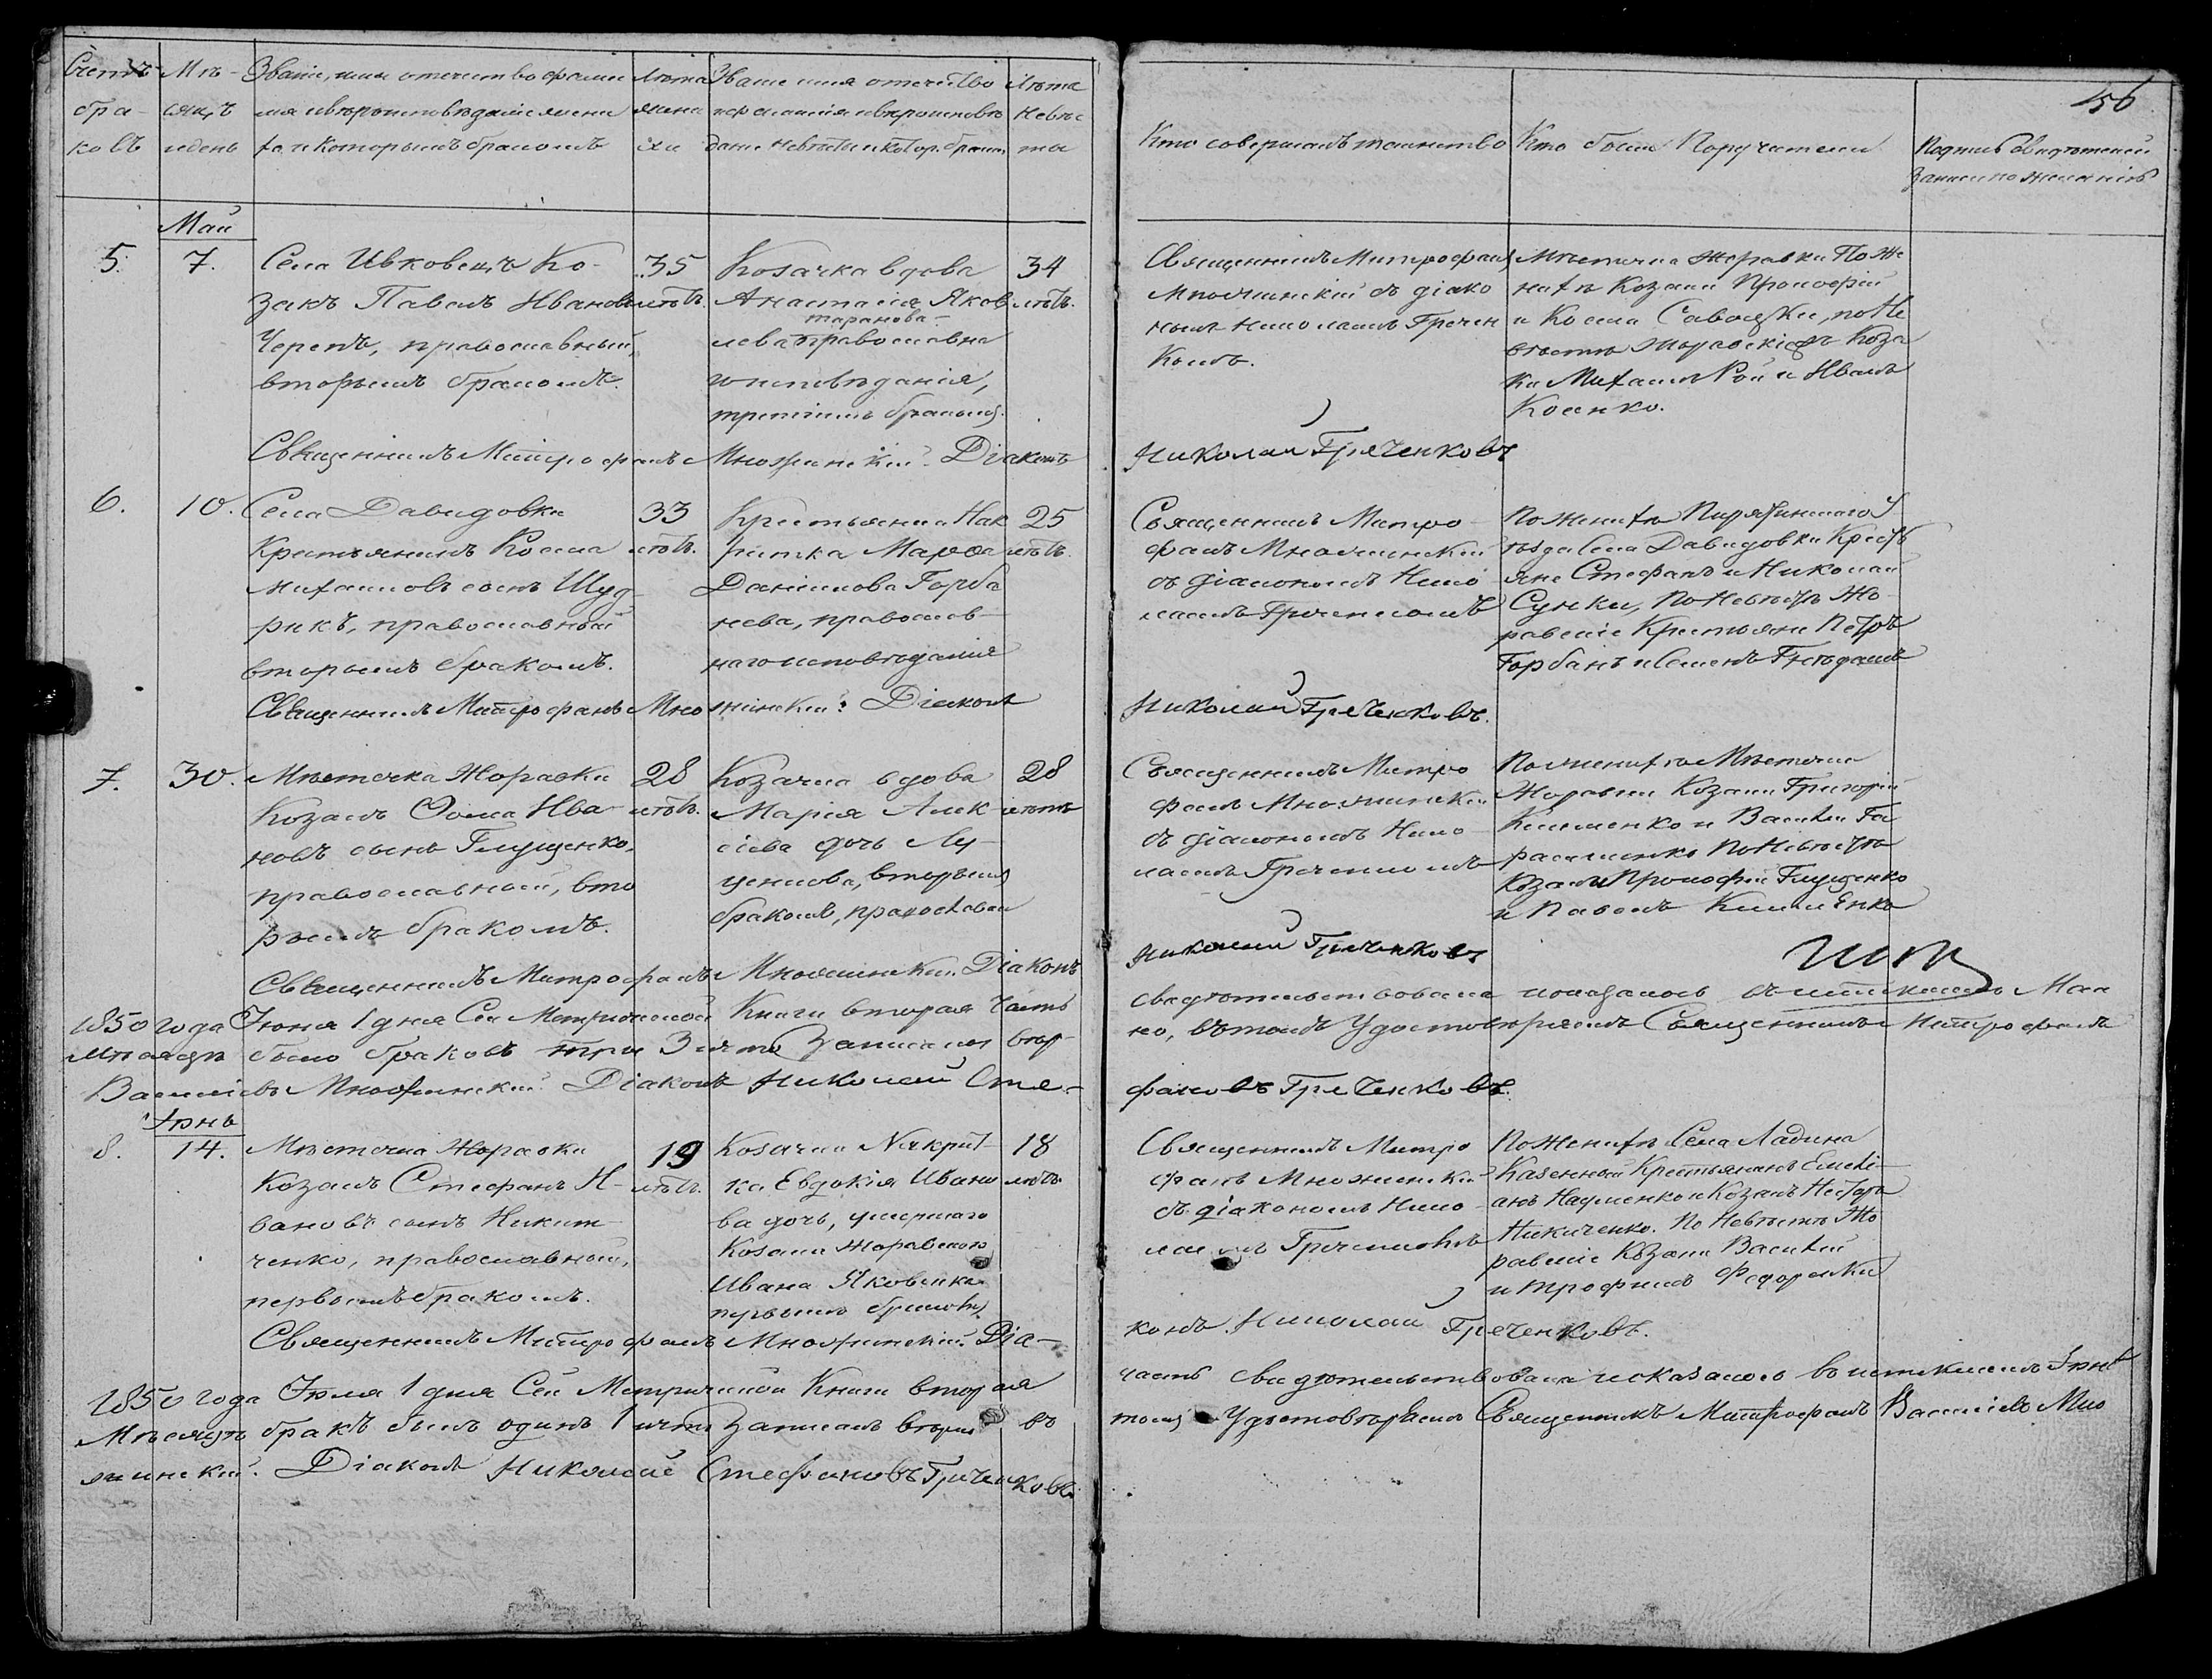 Счетъ бра-ковъ
Мѣ-сяцъ и день
Званіе, имя отечество фами
лія и вѣроисповѣданіе жени
ха и которымъ бракомъ
Лѣта жени
ха
Званіе имя отечество
и фамилія и вѣроисповѣ
даніе невѣсты и котор. браком
Лѣта Невѣс
ты
Кто совершалъ таинство
Кто были Поручители
Подпись свидѣтелей
записи по желанію
56
Май
5.
7.
Села Ивковецъ Ко-
закъ Павелъ Ивановъ
Черепъ, православный,
вторымъ бракомъ.
35
лѣтъ.
Козачка вдова
Анастасія Яков
таранова
лева православна
го исповѣданія,
третіимъ бракомъ.
34
лѣтъ.
Священникъ Митрофанъ
Множинскій съ діако
номъ Николаемъ Гречен
комъ.
Мѣстечка Жоравки По Же
нихѣ Козаки Прокофій
и Косма Савоцки, по Не
вѣстѣ Жоравскіе Коза
ки Михаилъ Рой и Иванъ
Косенко.
Священникъ Митрофанъ Множинскій Діаконъ
Николай Греченковъ
6.
10.
Села Давидовки
Крестьянинъ Косма
Михаиловъ сынъ Шуд-
рикъ, православный
вторымъ бракомъ.
33
лѣтъ.
Крестьянка Нак
ритка Марѳа
Даніилова Горба
нева, православ-
наго исповѣданія
25
лѣтъ.
Священникъ Митро-
фанъ Множинскій
съ діакономъ Нико
лаемъ Греченкомъ
По Женихѣ Пирятинскаго
уѣзда Села Давидовки Кресть
яне Стефанъ и Николай
Сунки, По Невѣстѣ Жо-
равскіе Крестьяне Петръ
Горбань и Семенъ
Священникъ Митрофанъ Множинскій Діаконъ
Николай Греченковъ.
7.
30.
Мѣстечка Жоравки
Козакъ Ѳома Ива-
новъ сынъ Глущенко,
православный, вто
рымъ бракомъ.
28
лѣтъ.
Козачка вдова
Марія Алек
сіева дочь Лу-
ценкова, вторымъ
бракомъ, православн
28
лѣтъ
Священникъ Митро
фанъ Множинскій
съ діакономъ Нико-
лаемъ Греченкомъ
По женихѣ Мѣстечка
Жоравки Козаки Григорій
Клименко и Василій Га
расименко По Невѣстѣ
Козаки Прокофій Глущенко
и Павелъ Клименко
Священникъ Митрофанъ Множинскій Діаконъ
Николай Греченковъ
1850 года Іюня 1 дня Сей Метрической Книги вторая Часть
свидѣтельствована и оказалось въ истекшемъ Маи
Мѣсяцѣ было браковъ три 3 и что Записаны вѣр-
но, въ томъ Удостовѣряемъ Священникъ Митрофанъ
Василіевъ Множинскій Діаконъ Николай Сте-
фановъ Греченковъ.
Іюнь
8.
14.
Мѣстечка Жоравки
Козакъ Стефанъ И-
вановъ сынъ Никит-
ченко, православный,
первымъ бракомъ.
19
лѣтъ.
Козачка Накрит
ка Евдокія Ивано
ва дочь, умершаго
Козака Жоравскаго
Ивана Яковенка
первымъ бракомъ
18
лѣтъ
Священникъ Митро
фанъ Множинскій
съ діакономъ Нико
лаемъ Греченкомъ
По Женихѣ Села Ладина
Казенный Крестьянинъ Емелі-
анъ Науменко и Козакъ Несторъ
Никитченко. По Невѣстѣ Жо
равскіе Козаки Василій
и Трофимъ Федоренки
Священникъ Митрофанъ Множинскій. Діа-
конъ Николай Греченковъ.
1850 года Іюля 1 дня Сей Метрической Книги вторая
часть свидѣтельствована и оказалось въ истекшемъ Іюнѣ
Мѣсяцѣ бракъ былъ одинъ 1 и что Записанъ вѣрно въ
томъ Удостовѣряемъ Священникъ Митрофанъ Василіевъ Мно
жинскій. Діаконъ Николай Стефановъ Греченковъ.